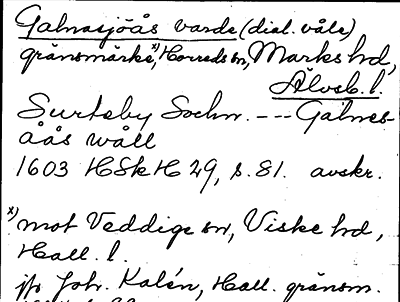 Galnasjöås varde (dial. våle)
gränsmärke,x) Horreds sn, Marks hd,
Älvsb. l.
Surteby Sochn. --- Galnes-
åås wåll
1603 HSkH 29, s. 81. avskr.
x) mot Veddige sn, Viske hd,
Hall. l.
jfr Joh. Kalén, Hall. gränsm.